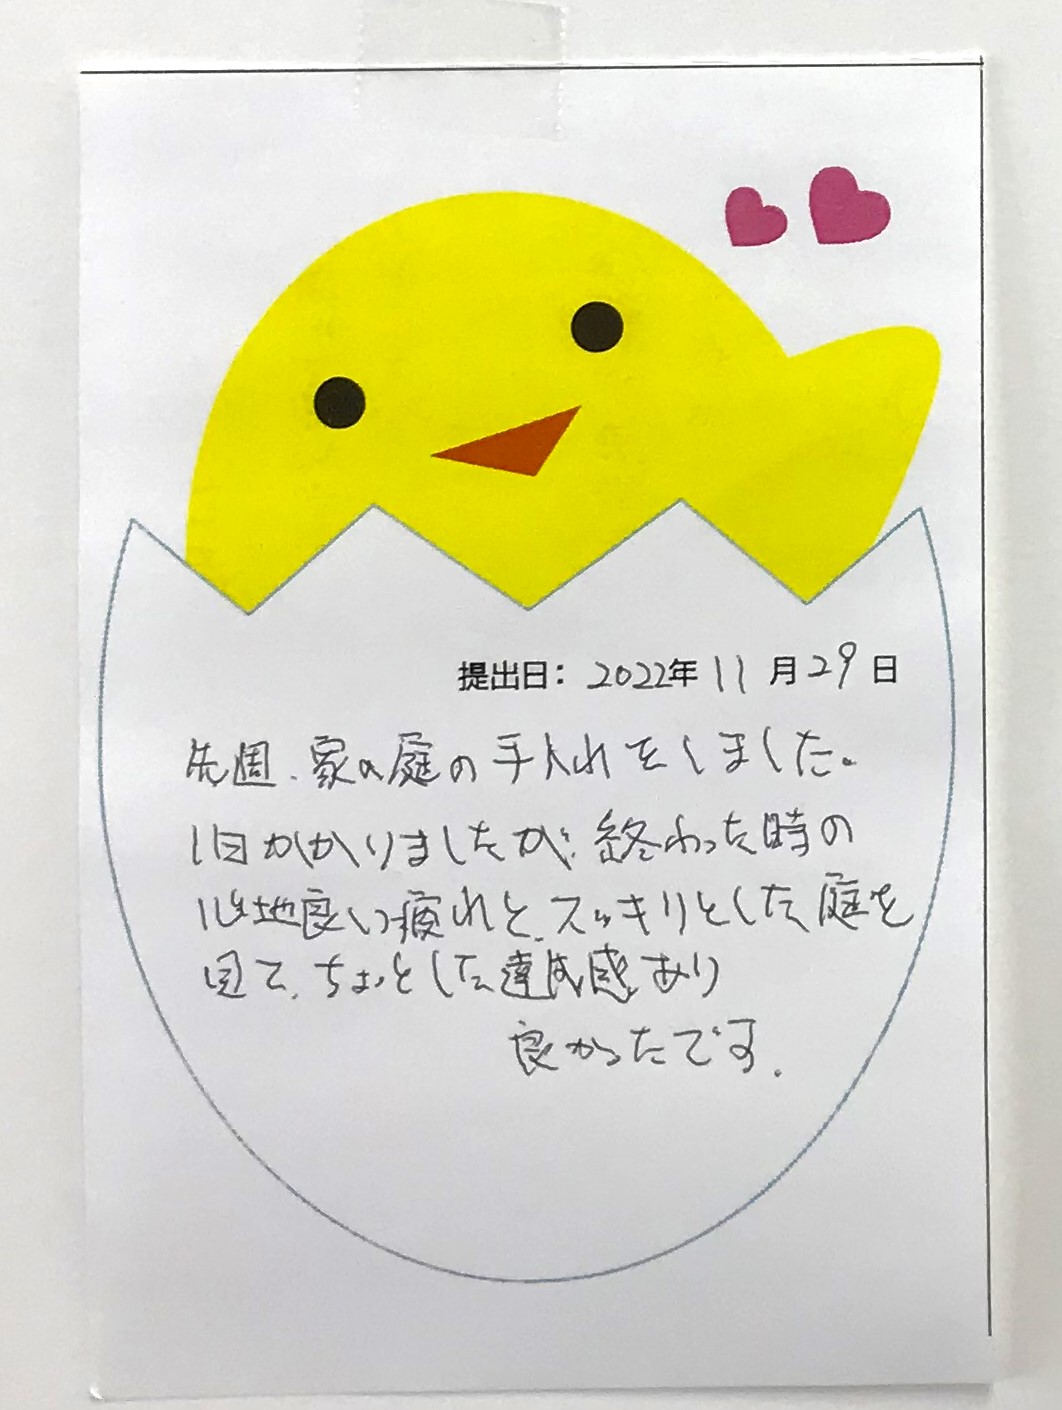 提出日: 2022年 11 月 29 日
先週、家の庭の手入れをしました。
1日かかりましたが、終わった時の
心地良い疲れと、スッキリとした庭を
見て、ちょっとした達成感あり
良かったです.